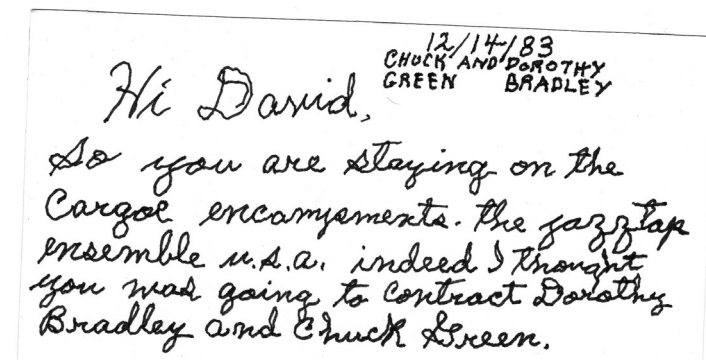 12/14/83
CHUCK AND DOROTHY
GREEN BRADLEY
Hi David,
So you are staying on the
Cargoe encampsments. The jazz tap
ensemble u.s.a. indeed I thought
you was going to contract Dorothy
Bradley and Chuck Green.